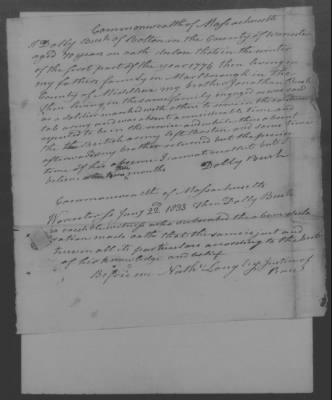 Commonwealth of Massachusetts
I Dolly Bush of Bolton in the County of Worcester
aged 70 years on oath declare that in the winter
of the first part of the Year 1776 then living in
my fathers family in Marlborough in the
County of Middlesex my brother Jonathan Bush
then living in the same family ingaged as was said
as a soldier marched with others to
and was about a considerable time and
reputed to be in the service and when
the British army left Boston and some time
afterward my brother returned but the precise
time of his absence I cannot state but I
believe two months Dolly Bush
Commonwealth of Massachusetts
Worcester ss Jany 22d 1833 Then Dolly Bush
who subscribed the above decla
ration made oath that the same is just and
true in all its particulars according to the best
of his knowledge and belief
Before me Nathl Longley Justice of
Peace